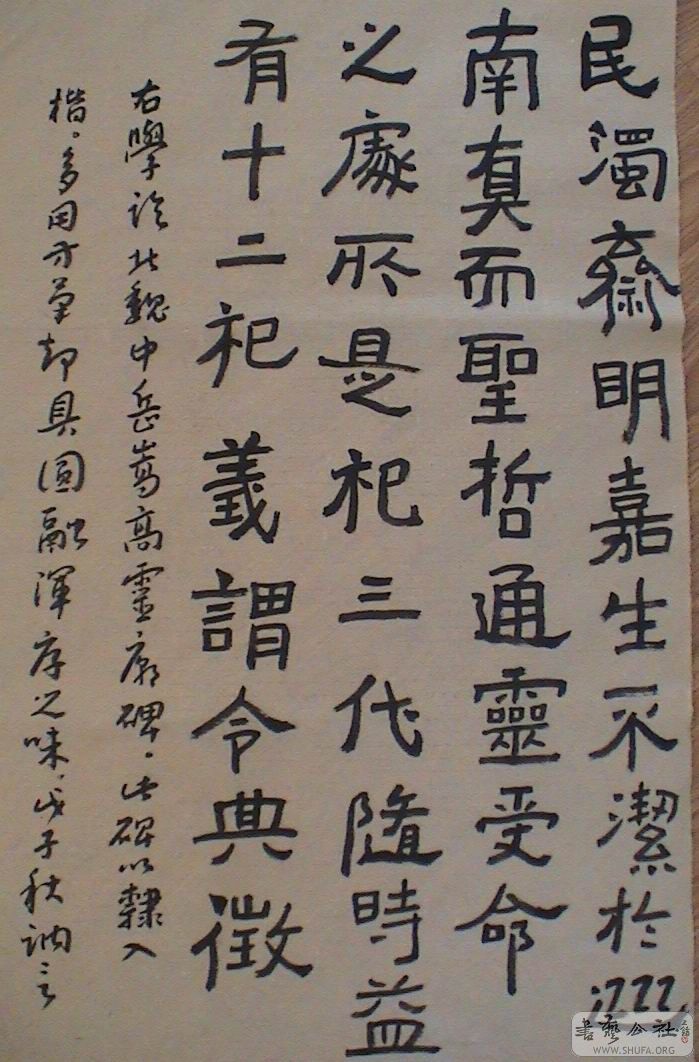 民濁齊明嘉生不潔於
南真而聖哲通靈受命
之處所是之祀三代隨時益
有十二祀義謂令典徵
右學臨北魏中岳嵩高靈廟碑。此碑以隸入
楷。多用方筆却具圓融渾厚之味。戊子秋訥言
書艺公社
WWW.SHUFA.ORG